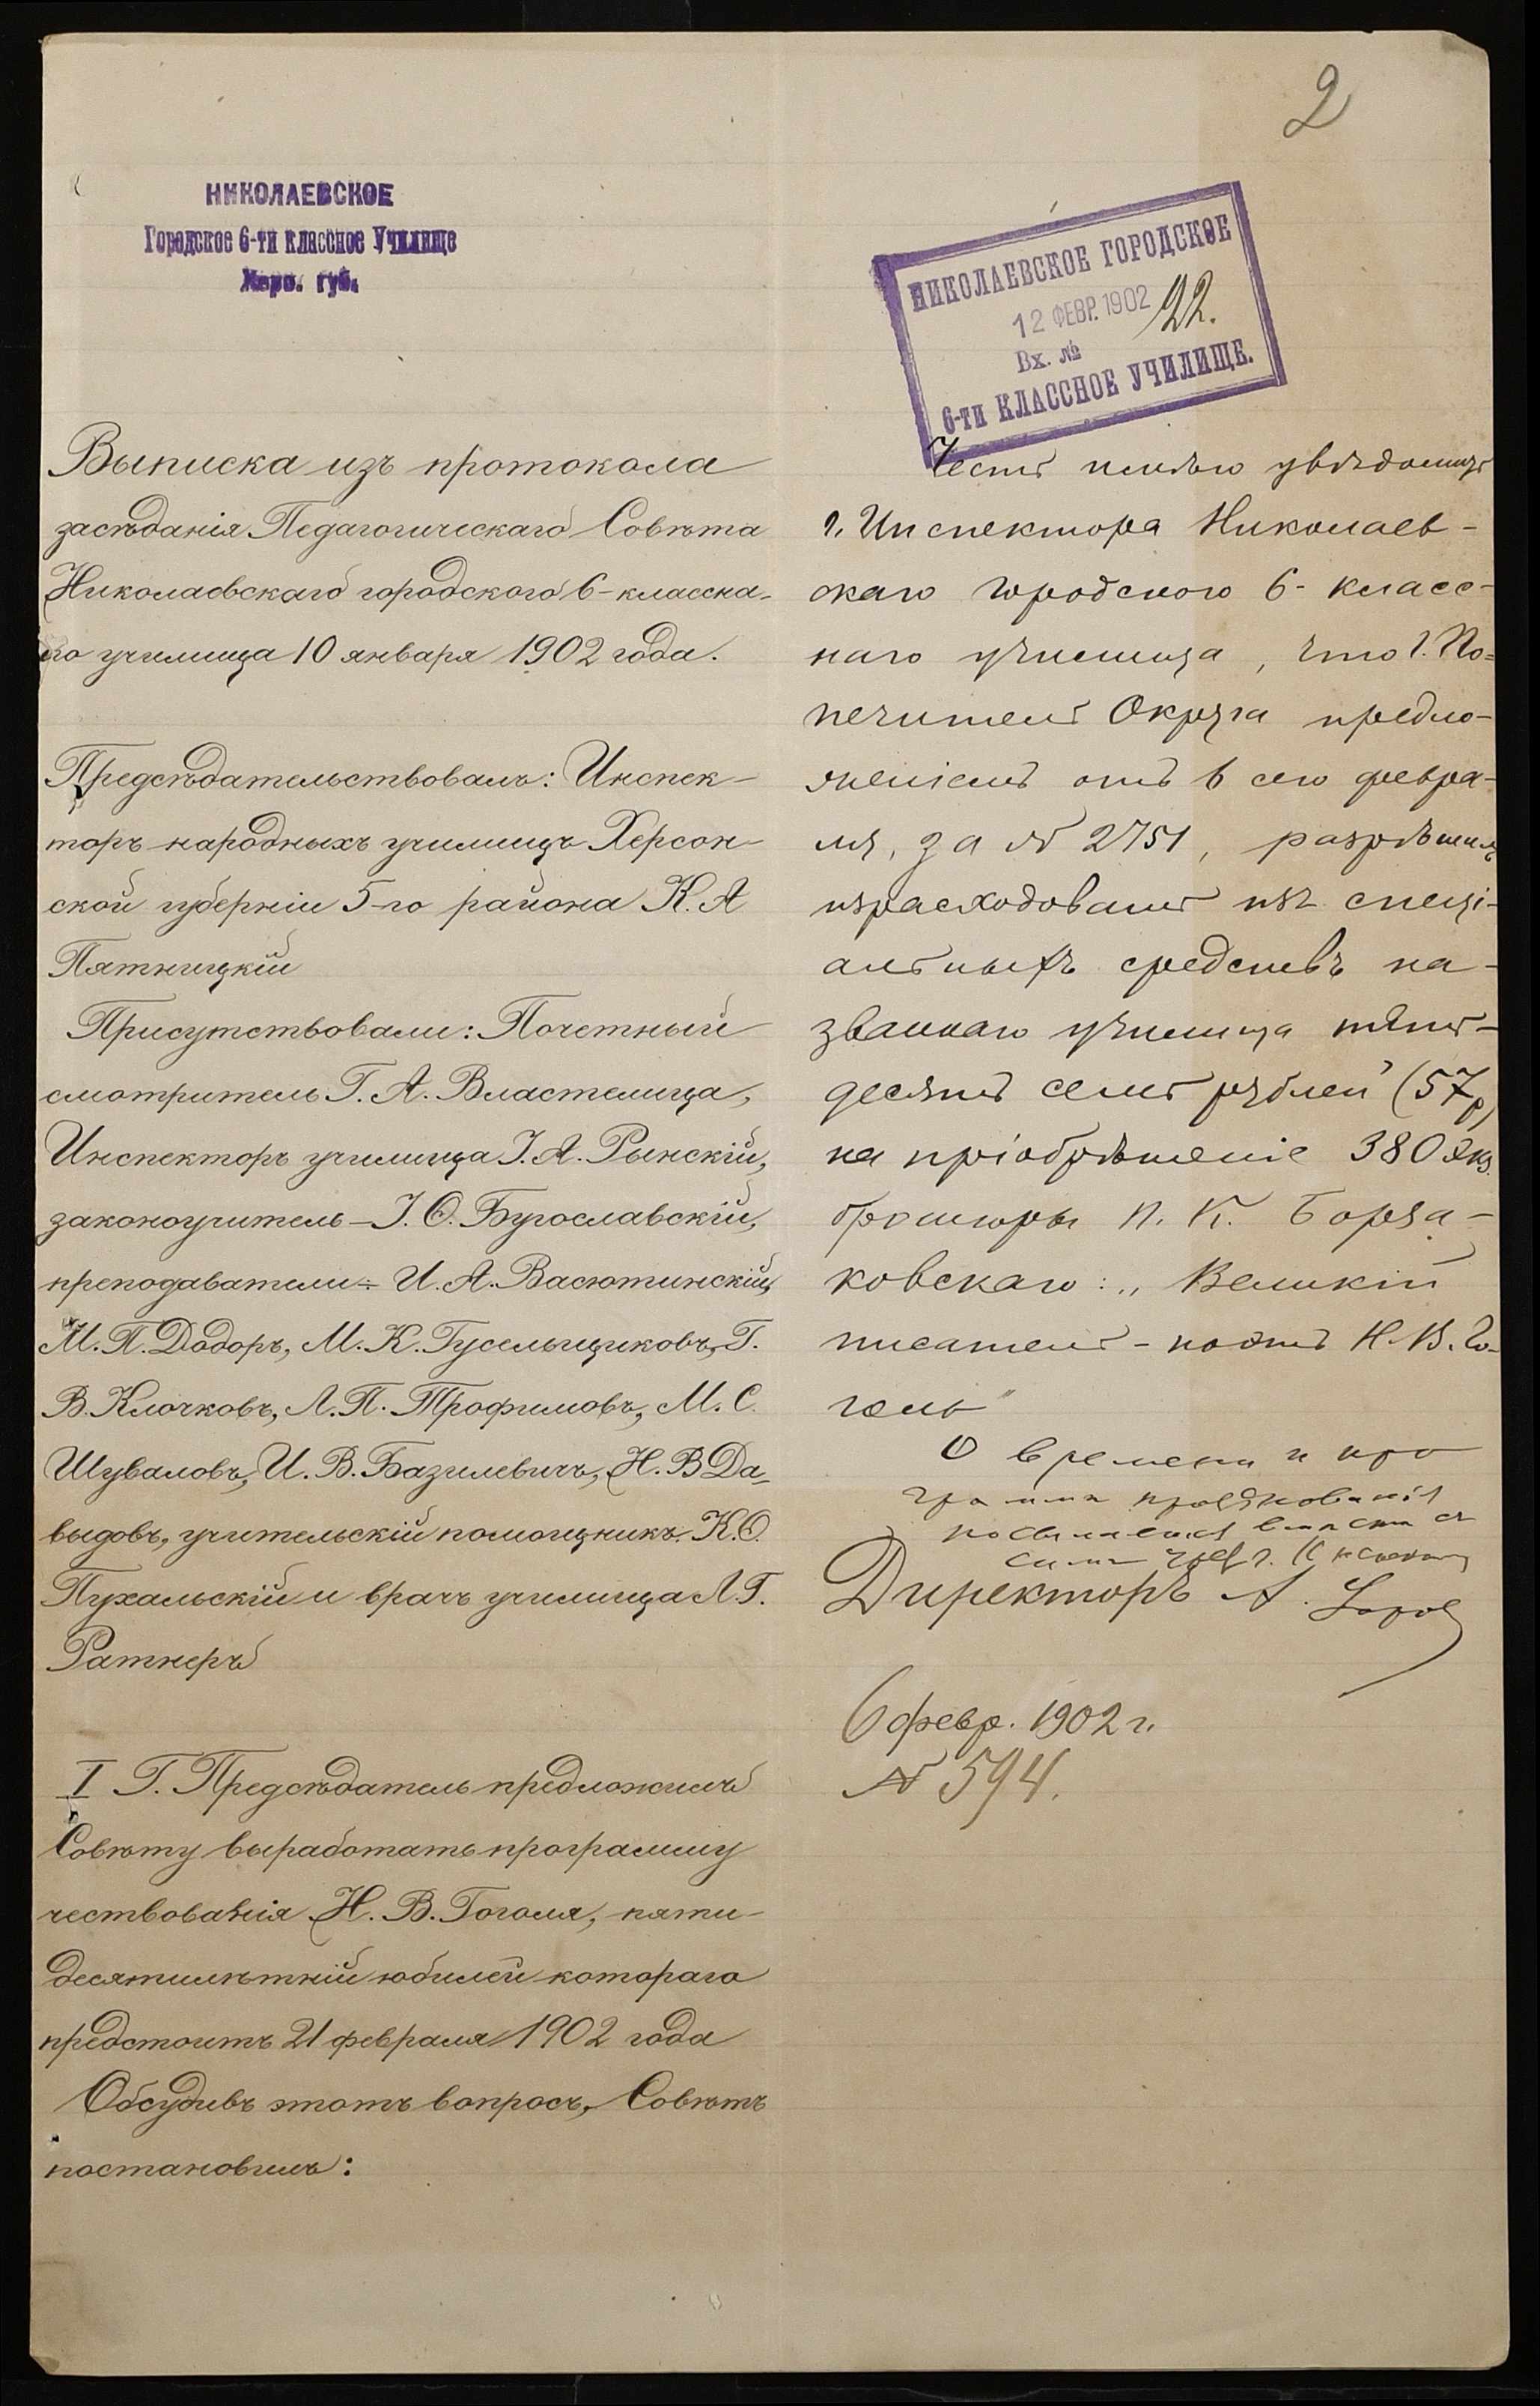 2
НИКОЛАЕВСКОЕ
Городское 6-ти классное Училище
Херс. губ.
Выписка изъ протокола
засѣданія Педагогическаго Совѣта
Николаевскаго городского 6-классна-
го училища 10 января 1902 года.
Предсѣдательствовалъ: Инспек-
торъ народныхъ училищъ Херсон-
ской губерніи 5-го района К. А
Пятницкій
Присутствовали: Почетный
смотритель Г. А. Властелица,
Инспекторъ училища І. А. Рынскій,
законоучитель – І. Ѳ. Бугославскій,
преподаватели: И. А. Васютинскій,
М. П. Додоръ, М. К. Гусельщиковъ, Г.
В. Клочковъ, Л. П. Трофимовъ, М. С.
Шуваловъ, И. В. Базилевичъ, Н. В Да-
выдовъ, учительскій помощникъ К. Ѳ.
Пухальскій и врачъ училища Л. Г.
Ратнеръ
I Г. Предсѣдатель предложилъ
Совѣту выработать программу
чествованія Н. В. Гоголя, пяти-
десятилѣтній юбилей котораго
предстоитъ 21 февраля 1902 года
Обсудивъ этотъ вопросъ, Совѣтъ
постановилъ:
НИКОЛАЕВСКОЕ ГОРОДСКОЕ
12 ФЕВР. 1902
Вх. № 122.
6-ТИ КЛАССНОЕ УЧИЛИЩЕ.
Честь имѣю увѣдомить
г. Инспектора Николаев-
скаго городского 6-класс-
наго училища, что г. По-
печитель Округа предло-
женіемъ отъ 6 сего февра-
ля, за № 2751, разрѣшилъ
израсходовать изъ спеці-
альныхъ средствъ на-
званнаго училища пять-
десятъ семь рублей (57 р)
на пріобрѣтеніе 380 экз.
брошюры П. К. Борза-
ковскаго: „Великій
писатель - поэтъ Н. В. Го-
голь"
О времени и про
грамма празднованія
посылается вмѣстѣ съ
симъ г.
Директоръ А.
6 февр. 1902 г.
№ 594.